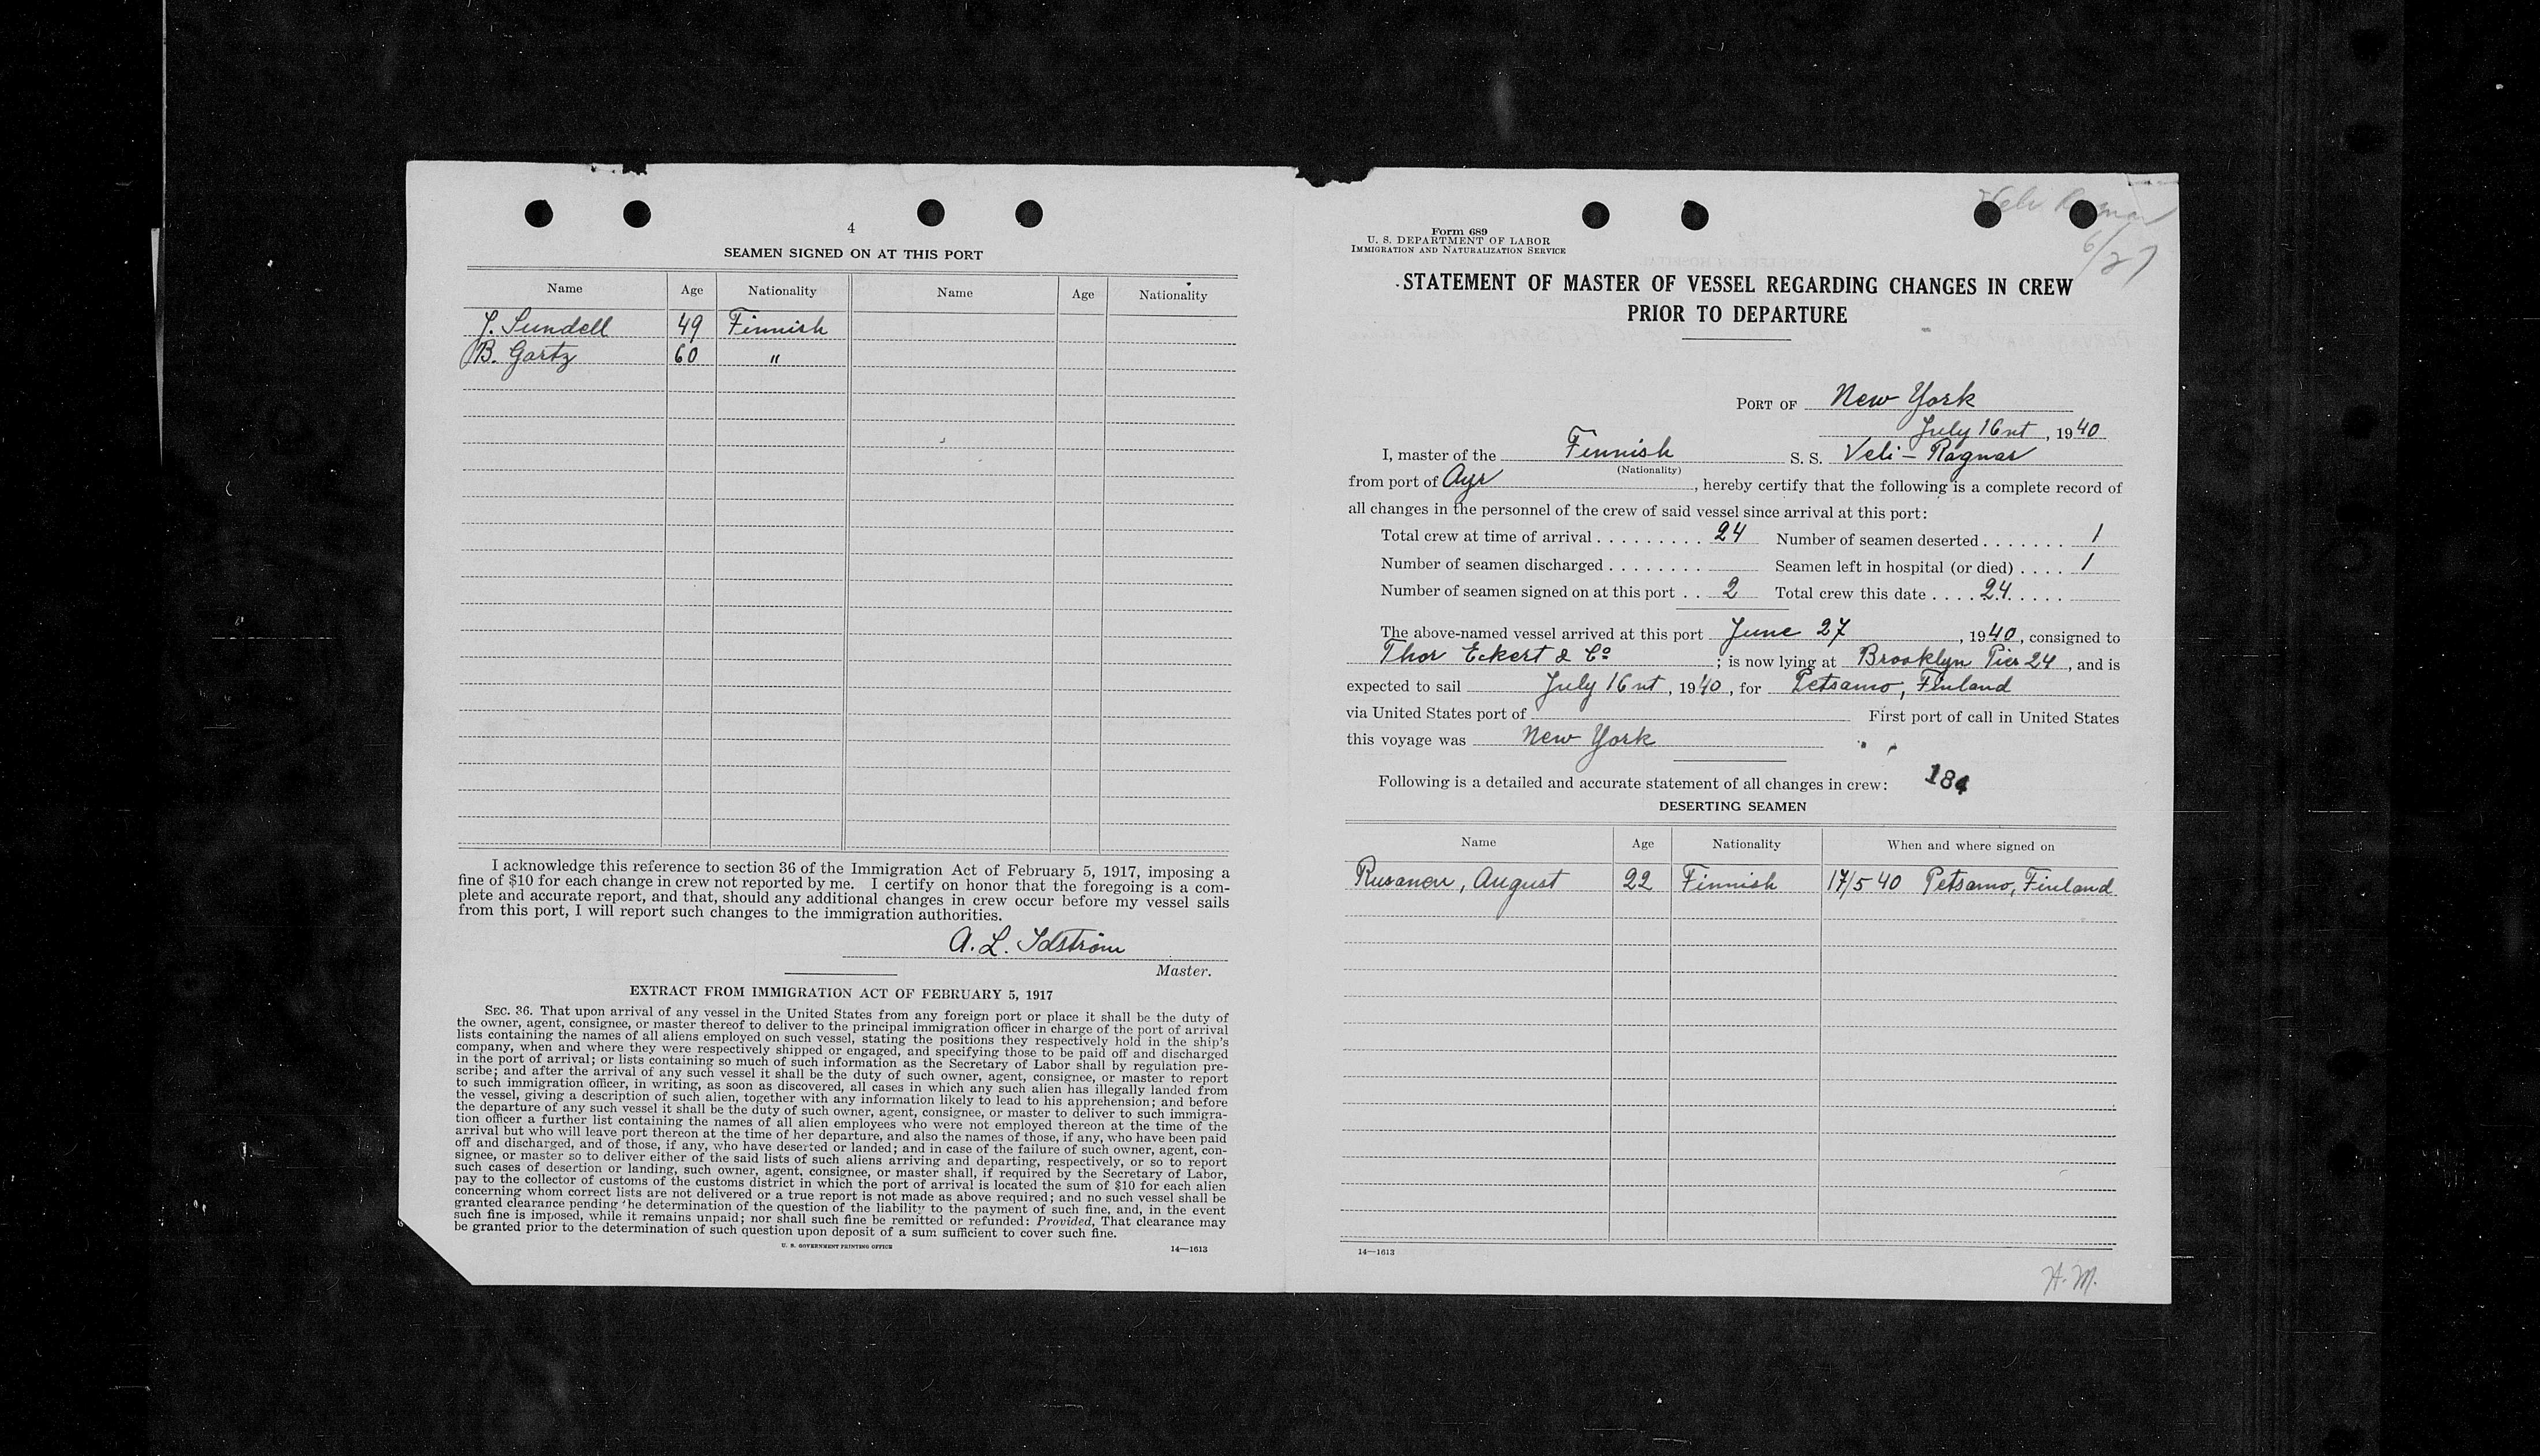 4
SEAMEN SIGNED ON AT THIS PORT
Name Age Nationality Name Age Nationality
J. Sundell 49 Finnish
B. Gartz 60 "
I acknowledge this reference to section 36 of the Immigration Act of February 5, 1917, imposing a
fine of $10 for each change in crew not reported by me. I certify on honor that the foregoing is a com-
plete and accurate report, and that, should any additional changes in crew occur before my vessel sails
from this port, I will report such changes to the immigration authorities.
A. L. Idström
Master.
EXTRACT FROM IMMIGRATION ACT OF FEBRUARY 5, 1917
SEC. 36. That upon arrival of any vessel in the United States from any foreign port or place it shall be the duty of
the owner, agent, consignee, or master thereof to deliver to the principal immigration officer in charge of the port of arrival
lists containing the names of all aliens employed on such vessel, stating the positions they respectively hold in the ship's
company, when and where they were respectively shipped or engaged, and specifying those to be paid off and discharged
in the port of arrival; or lists containing so much of such information as the Secretary of Labor shall by regulation pre-
scribe; and after the arrival of any such vessel it shall be the duty of such owner, agent, consignee, or master to report
to such immigration officer, in writing, as soon as discovered, all cases in which any such alien has illegally landed from
the vessel, giving a description of such alien, together with any information likely to lead to his apprehension; and before
the departure of any such vessel it shall be the duty of such owner, agent, consignee, or master to deliver to such immigra-
tion officer a further list containing the names of all alien employees who were not employed thereon at the time of the
arrival but who will leave port thereon at the time of her departure, and also the names of those, if any, who have been paid
off and discharged, and of those, if any, who have deserted or landed; and in case of the failure of such owner, agent, con-
signee, or master so to deliver either of the said lists of such aliens arriving and departing, respectively, or so to report
such cases of desertion or landing, such owner, agent, consignee, or master shall, if required by the Secretary of Labor,
pay to the collector of customs of the customs district in which the port of arrival is located the sum of $10 for each alien
concerning whom correct lists are not delivered or a true report is not made as above required; and no such vessel shall be
granted clearance pending the determination of the question of the liability to the payment of such fine, and, in the event
such fine is imposed, while it remains unpaid; nor shall such fine be remitted or refunded: Provided, That clearance may
be granted prior to the determination of such question upon deposit of a sum sufficient to cover such fine.
U. S. GOVERNMENT PRINTING OFFICE 14—1613
Veli Ragnar
6/27
Form 689
U. S. DEPARTMENT OF LABOR
IMMIGRATION AND NATURALIZATION SERVICE
STATEMENT OF MASTER OF VESSEL REGARDING CHANGES IN CREW
PRIOR TO DEPARTURE
PORT OF New York
July 16nt, 1940
I, master of the Finnish S. S. Veli-Ragnar
(Nationality)
from port of Ayr, hereby certify that the following is a complete record of
all changes in the personnel of the crew of said vessel since arrival at this port:
Total crew at time of arrival . . . . . . . . . 24 Number of seamen deserted . . . . . . . 1
Number of seamen discharged . . . . . . . . Seamen left in hospital (or died) . . . . 1
Number of seamen signed on at this port . . 2 Total crew this date . . . . 24 . . . . .
The above-named vessel arrived at this port June 27, 1940, consigned to
Thor Eckert & Co; is now lying at Brooklyn Pier 24, and is
expected to sail July 16nt, 1940, for Petsamo, Finland
via United States port of First port of call in United States
this voyage was New York
Following is a detailed and accurate statement of all changes in crew: 184
DESERTING SEAMEN
Name Age Nationality When and where signed on
Rusanen, August 22 Finnish 17/5 40 Petsamo, Finland
14—1613
H. M.